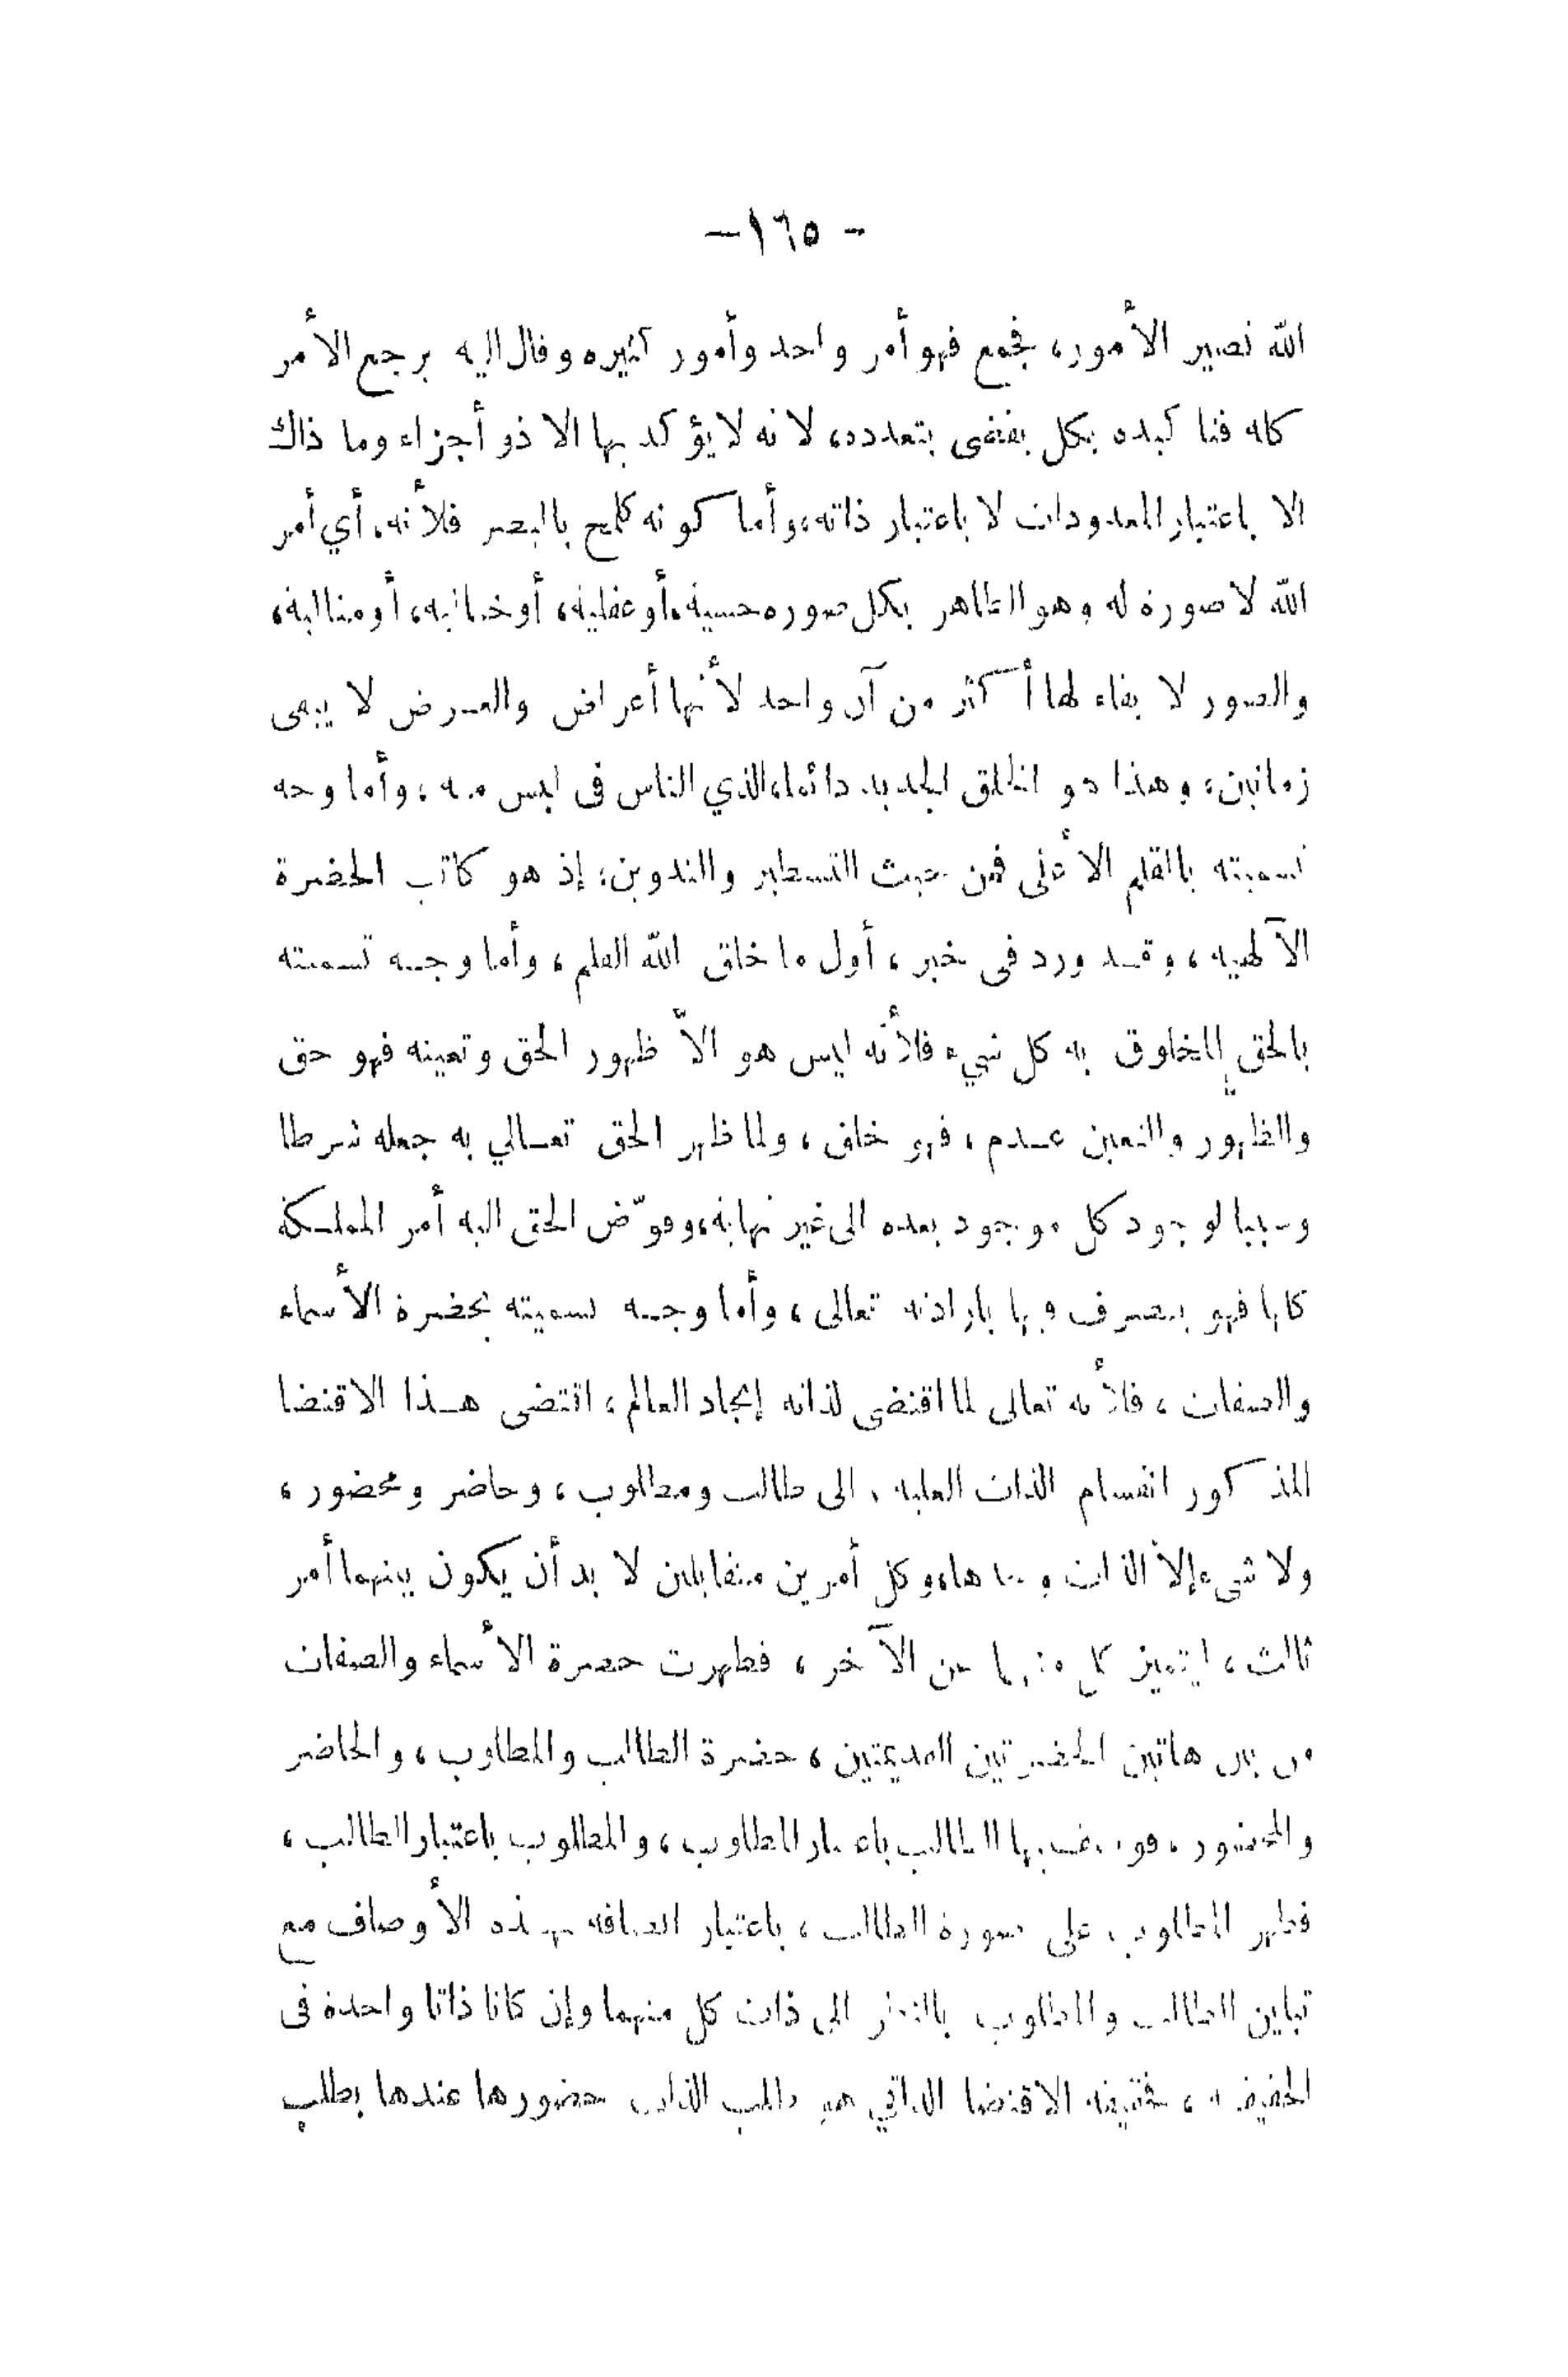 - ١٦٥ -
الله تصير الأمور، فجمع فهو أمر واحد وأمور كثيره وقال اليه يرجع الأمر
كله فتا كيده بكل يقضى بتعدده، لانه لا يؤكد بها الا ذو أجزاء وما ذاك
الا باعتبار المعدودات لا باعتبار ذاته، وأما كونه كلمح بالبصر فلأنه، أي أمر
الله لا صورة له وهو الظاهر بكل صوره حسية، أو عقلية، أو خيالية، أو مثالية،
والصور لا بقاء لها أكثر من آن واحد لأنها أعراض والعرض لا يبقى
زمانين، وهذا هو الخلق الجديد دائما، الذي الناس فى لبس منه، وأما وجه
تسميته بالقلم الأعلى فمن حيث التسطير والتدوين، إذ هو كاتب الحضرة
الآلهيه، وقد ورد في خبر، أول ما خلق الله القلم، وأما وجه تسميته
بالحق المخلوق به كل شيء فلأنه ليس هو الاّ ظهور الحق وتعينه فهو حق
والظهور والتعين عدم، فهو خلق، ولما ظهر الحق تعالي به جعله شرطا
وسببا لوجود كل موجود بعده الى غير نهاية، وفوّض الحق اليه أمر المملكة
كلها فهو يتصرف فيها بارادته تعالى، وأما وجه تسميته بحضرة الأسماء
والصفات، فلأنه تعالى لما اقتضى لذاته إيجاد العالم، اقتضى هذا الاقتضا
المذكور انقسام الذات العلية، الى طالب ومطلوب، وحاضر ومحضور،
ولا شىء إلا الذات وحدها، وكل أمرين متقابلين لا بد أن يكون بينهما أمر
ثالث، ليتميز كل منهما عن الآخر، فظهرت حضرة الأسماء والصفات
من بين هاتين الحضرتين القديمتين، حضرة الطالب والمطلوب، والحاضر
والمحضور، فوصف بها الطالب باعتبار المطلوب، والمطلوب باعتبار الطالب،
فظهر المطلوب على صورة الطالب، باعتبار اتصافه بهذه الأوصاف مع
تباين الطالب والمطلوب بالنظر الى ذات كل منهما وإن كانا ذاتا واحدة فى
الحقيقه، فحقيقه الاقتضا الذاتي هو طلب الذات حضورها عندها بطلب